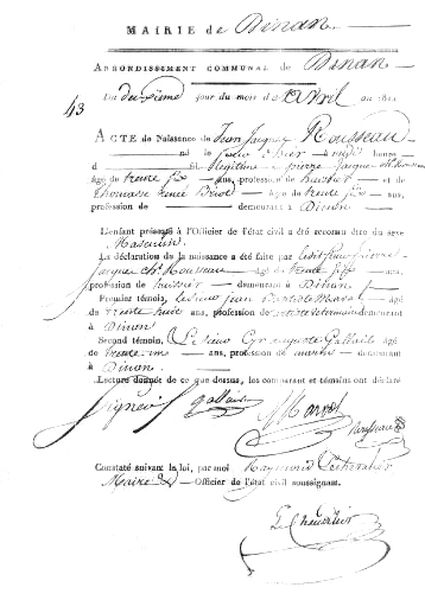 MAIRIE de Dinan
ARRONDISSEMENT COMMUNAL de Dinan
43
Du deuxième jour du mois d'avril an 181
ACTE de Naissance de Jean Jacques Rousseau
né le jour d'hier à midi heure
d légitime pierre Jacques
âgé de trente six ans, profession de huissier et de
Thomasse Renée âgé de trente six ans,
profession de demeurant à Dinan
L'enfant présenté à l'Officier de l'état civil a été reconnu être du sexe
Masculin.
La déclaration de la naissance a été faite par ledit sieur pierre
Jacques Ch. Rousseau âgé de trente six ans
profession de huissier demeurant à Dinan
Premier témoin, le sieur jean Baptiste âgé
de trente huit ans, profession de demeurant
à Dinan
Second témoin, Le sieur Cyr auguste Gallais âgé
de trente ans, profession de demeurant
à Dinan.
Lecture donnée de ce que dessus, les comparant et témoins ont déclaré
Signer gallais
Rousseau
Constaté suivant la loi, par moi Raymond Lechevalier
Maire Officier de l'état civil soussignant.
Le Chevalier